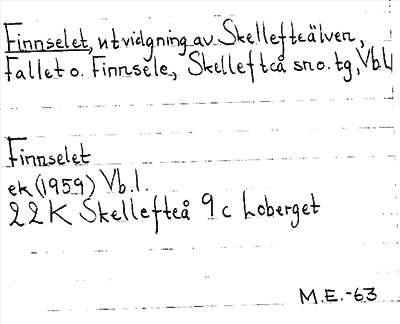 Finnselet, utvidgning av Skellefteälven,
Fallet o. Finnsele, Skellefteå sn o. tg, Vb.l.
Finnselet
ek (1959) Vb.l.
22K Skellefteå 9c Loberget
M.E.-63